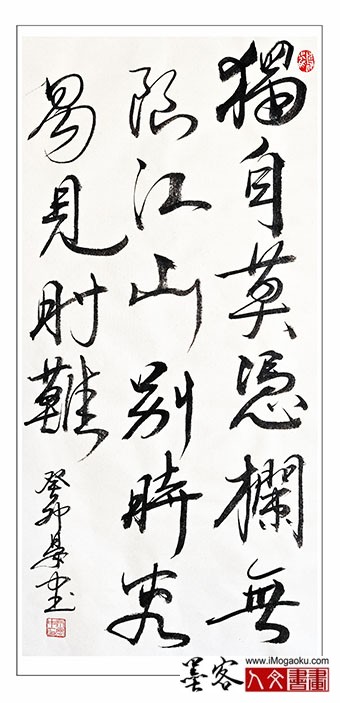 獨自莫憑欄無
限江山別時容
易見時難
癸卯書
墨客
www.iMogaoku.com
人文書畫